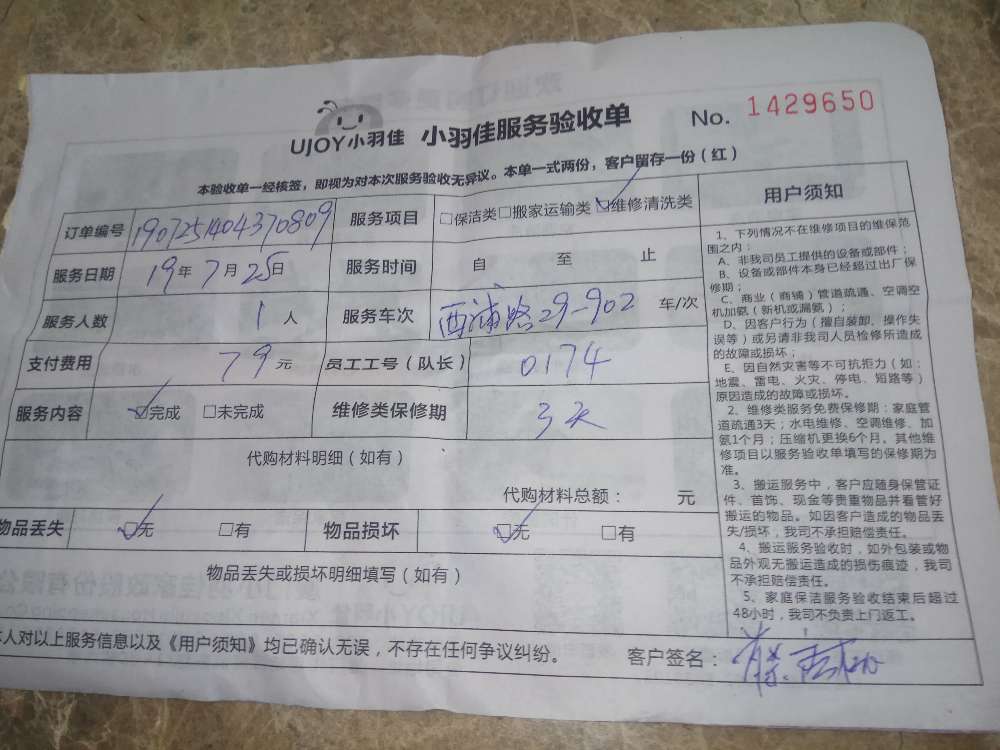 UJOY小羽佳 小羽佳服务验收单 No. 1429650
本验收单一经核签，即视为对本次服务验收无异议。本单一式两份，客户留存一份（红）
订单编号 1907251404370809 服务项目 □保洁类□搬家运输类☑维修清洗类
服务日期 19年7月25日 服务时间 自 至 止
服务人数 1人 服务车次 西浦路29-902 车/次
支付费用 79元 员工工号（队长） 0174
服务内容 ☑完成 □未完成 维修类保修期 3天
代购材料明细（如有）
代购材料总额： 元
物品丢失 ☑无 □有 物品损坏 ☑无 □有
物品丢失或损坏明细填写（如有）
人对以上服务信息以及《用户须知》均已确认无误，不存在任何争议纠纷。 客户签名：
用户须知
1、下列情况不在维修项目的维保范
围之内：
A、非我司员工提供的设备或部件；
B、设备或部件本身已经超过出厂保
修期；
C、商业（商铺）管道疏通、空调空
机加氨（新机或漏氨）；
D、因客户行为（擅自装卸、操作失
误等）或另请非我司人员检修所造成
的故障或损坏；
E、因自然灾害等不可抗拒力（如：
地震、雷电、火灾、停电、短路等）
原因造成的故障或损坏。
2、维修类服务免费保修期：家庭管
道疏通3天；水电维修、空调维修、加
氨1个月；压缩机更换6个月。其他维
修项目以服务验收单填写的保修期为
准。
3、搬运服务中，客户应随身保管证
件、首饰、现金等贵重物品并看管好
搬运的物品。如因客户造成的物品丢
失/损坏，我司不承担赔偿责任。
4、搬运服务验收时，如外包装或物
品外观无搬运造成的损伤痕迹，我司
不承担赔偿责任。
5、家庭保洁服务验收结束后超过
48小时，我司不负责上门返工。